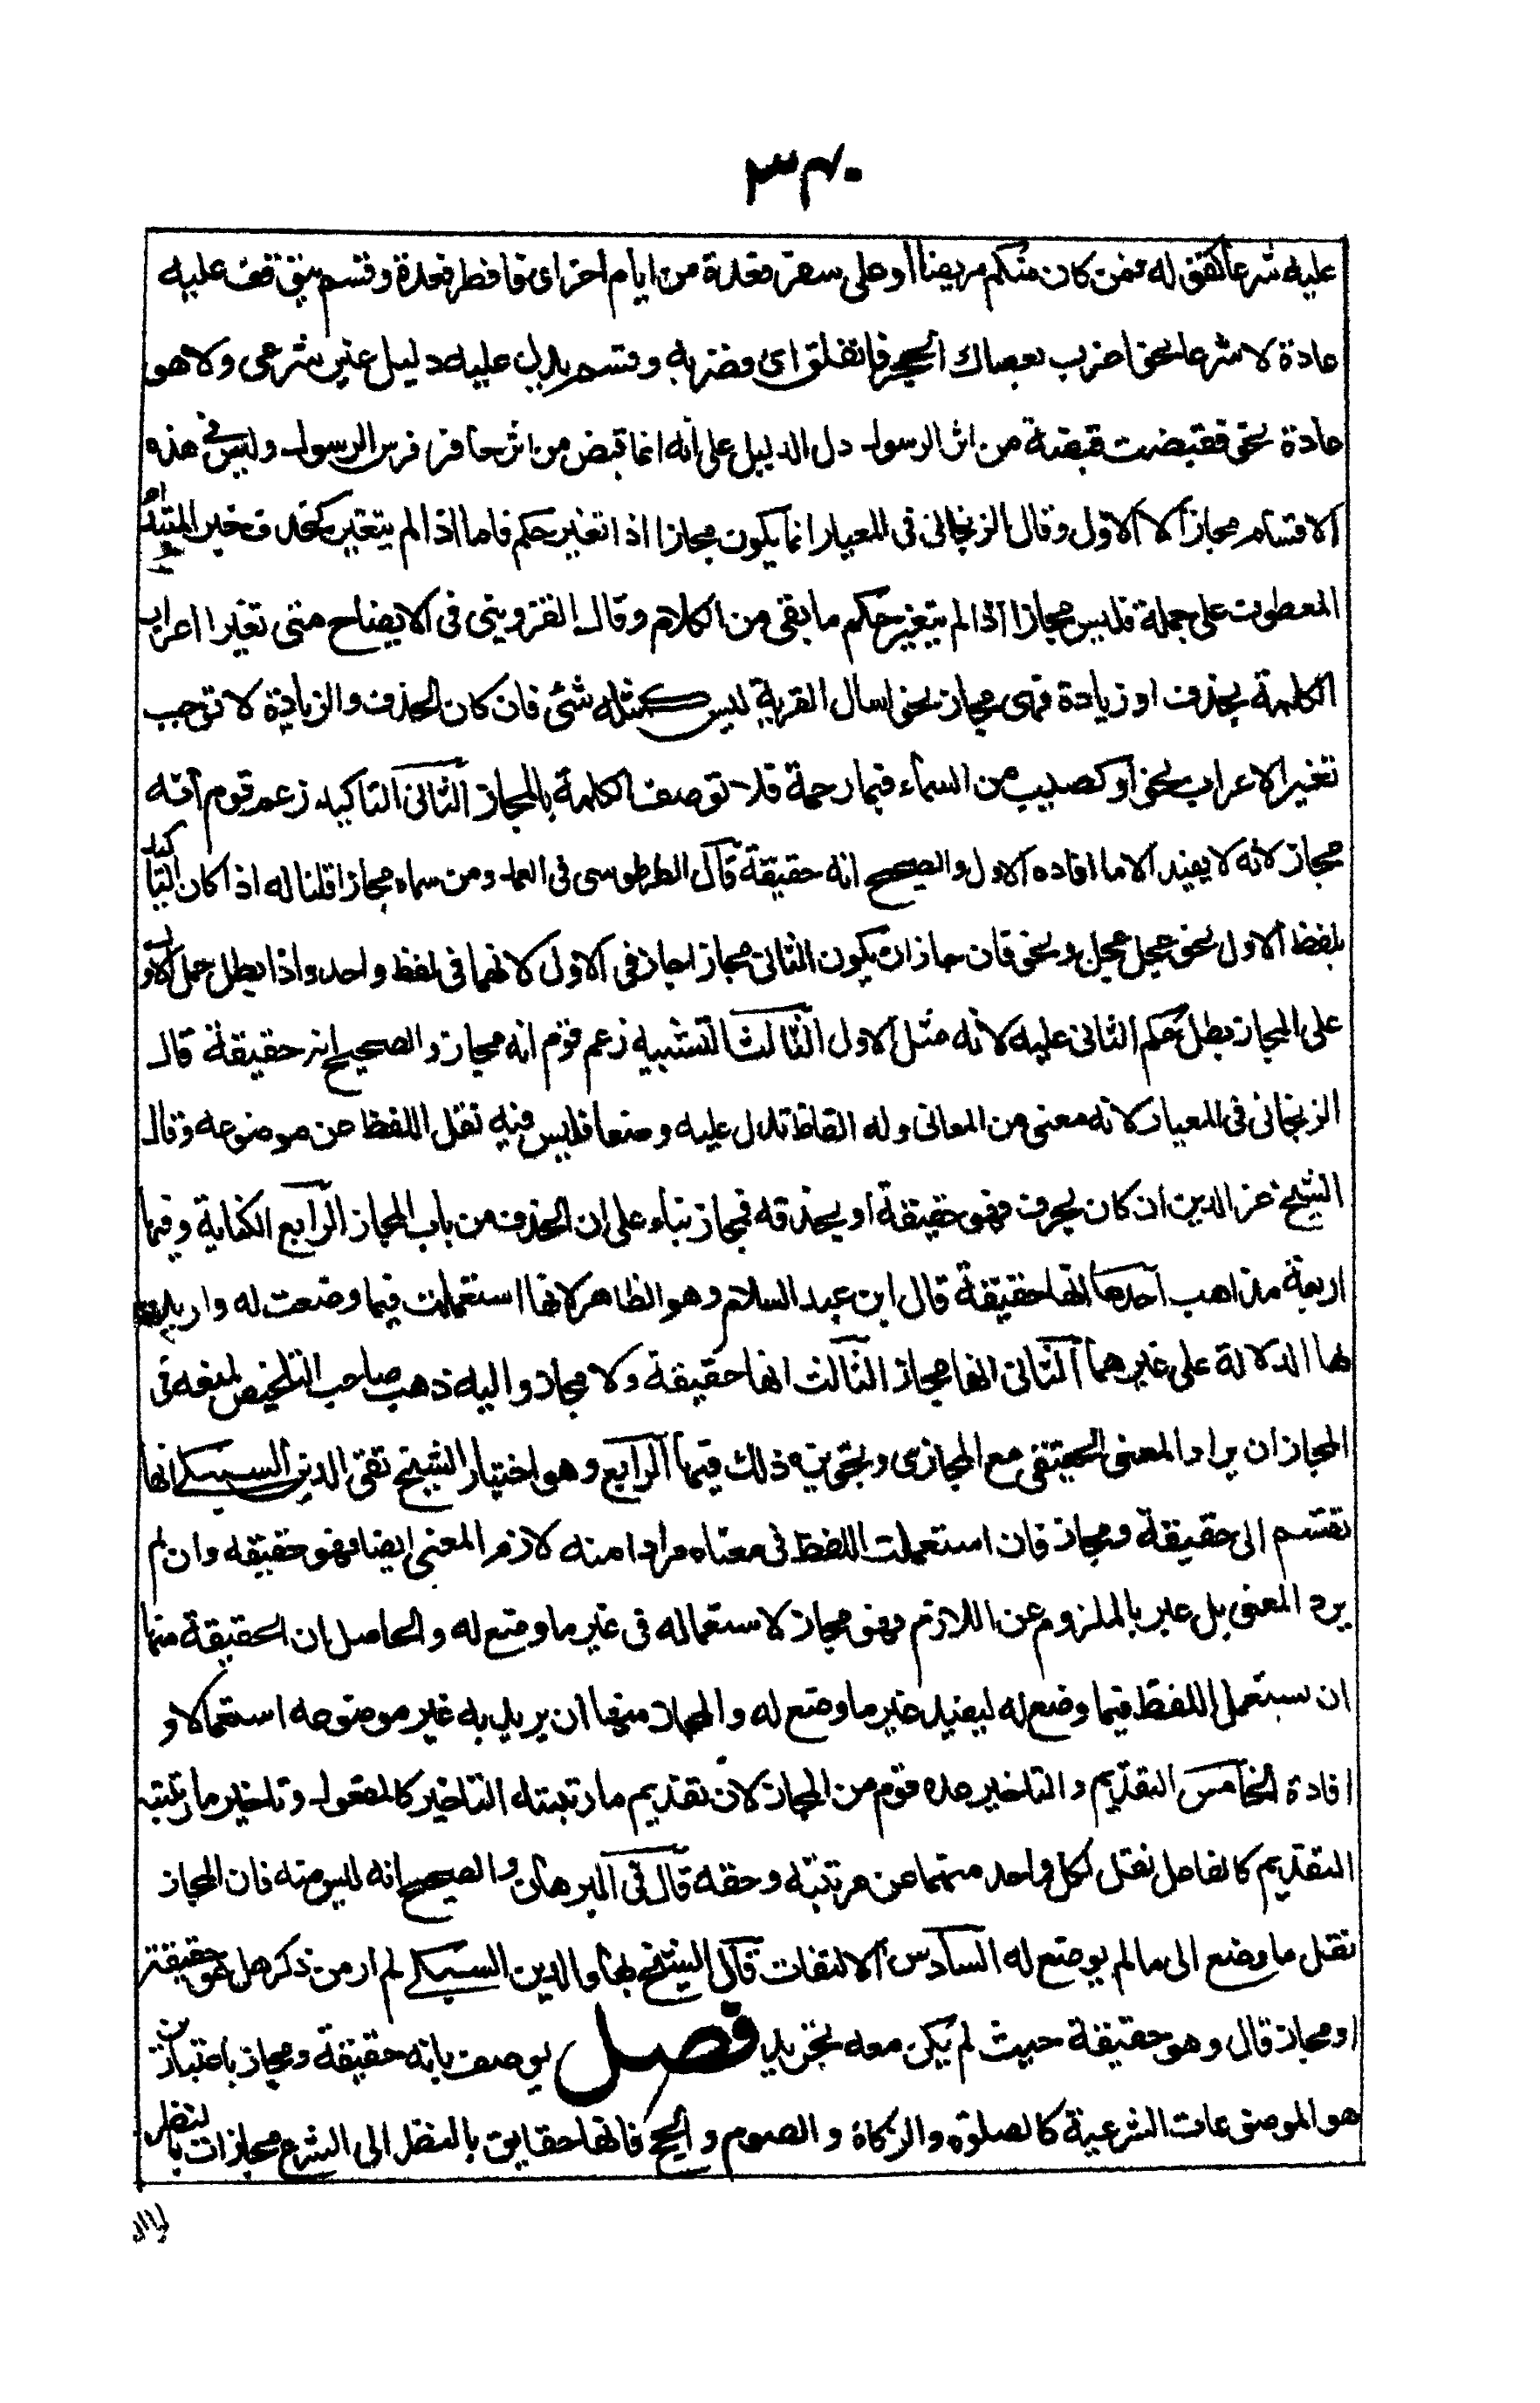 ٣٤٠
عليه شرعا كقوله فمن كان منكم مريضا او على سفر فعدة من ايام اخر اى فافطر فعدة وقسم يتوقف عليه
عادة لا شرعا نحو اضرب بعصاك الحجر فانفلق اى فضربه وقسم يدل عليه دليل غير شرعى ولا هو
عادة نحو فقبضت قبضة من اثر الرسول دل الدليل على انه انما قبض من اثر حافر فرس الرسول وليس فى هذه
الاقسام مجاز الا الاول وقال الزنجانى فى المعيار انما يكون مجازا اذا تغير حكم فاما اذا لم يتغير كحذف خبر المبتدأ
المعطوف على جملة فليس مجازا اذا لم يتغير حكم ما بقى من الكلام وقال القزوينى فى الايضاح متى تغير اعراب
الكلمة بحذف او زيادة فهى مجاز نحو اسال القرية ليس كمثله شئ فان كان الحذف والزيادة لا توجب
تغير الاعراب نحو او كصيب من السماء فبما رحمة فلا توصف الكلمة بالمجاز الثانى التاكيد زعم قوم انه
مجاز لانه لا يفيد الا ما افاده الاول والصحيح انه حقيقة قال الطرطوسى فى العمد ومن سماه مجازا قلنا له اذا كان التاكيد
بلفظ الاول نحو عجل عجل ونحوه فان جاز ان يكون الثانى مجازا جاز فى الاول لانهما فى لفظ واحد واذا بطل حمل الاول
على المجاز بطل حكم الثانى عليه لانه مثل الاول الثالث التشبيه زعم قوم انه مجاز والصحيح انه حقيقة قال
الزنجانى فى المعيار لانه معنى من المعانى وله الفاظ تدل عليه وضعا فليس فيه نقل اللفظ عن موضوعه وقال
الشيخ عز الدين ان كان بحرف فهو حقيقة او بحذفه فمجاز بناء على ان الحذف من باب المجاز الرابع الكناية وفيها
اربعة مذاهب احدها انها حقيقة قال ابن عبد السلام وهو الظاهر لانها استعملت فيما وضعت له واريد
بها الدلالة على غيرهما الثانى انها مجاز الثالث انها حقيقة ولا مجاز واليه ذهب صاحب التلخيص لمنعه فى
المجاز ان يراد المعنى الحقيقى مع المجازى وتجويزه ذلك فيها الرابع وهو اختيار الشيخ تقى الدين السبكى انها
تقسم الى حقيقة ومجاز فان استعملت اللفظ فى معناه مرادا منه لازم المعنى ايضا فهو حقيقه وان لم
يرد المعنى بل عبر بالملزوم عن اللازم فهو مجاز لاستعماله فى غير ما وضع له والحاصل ان الحقيقة منها
ان يستعمل اللفظ فيما وضع له ليفيد غير ما وضع له والمجاز منها ان يريد به غير موضوعه استعمالا و
افادة الخامس التقديم والتاخير عده قوم من المجاز لان تقديم ما رتبته التاخير كالمفعول وتاخير ما رتبته
التقديم كالفاعل نقل لكل واحد منهما عن مرتبته وحقه قال فى البرهان والصحيح انه ليس منه فان المجاز
نقل ما وضع الى ما لم يوضع له السادس الالتفات قال الشيخ بهاء الدين السبكى لم ار من ذكر هل هو حقيقة
او مجاز قال وهو حقيقة حيث لم يكن معه تجريد فصل يوصف بانه حقيقة ومجاز باعتبارين
هو الموضوعات الشرعية كالصلوة والزكاة والصوم والحج فانها حقايق بالنظر الى الشرع مجازات بالنظر